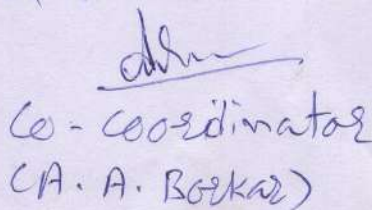 Co-Coordinator
(A. A. Borkar)